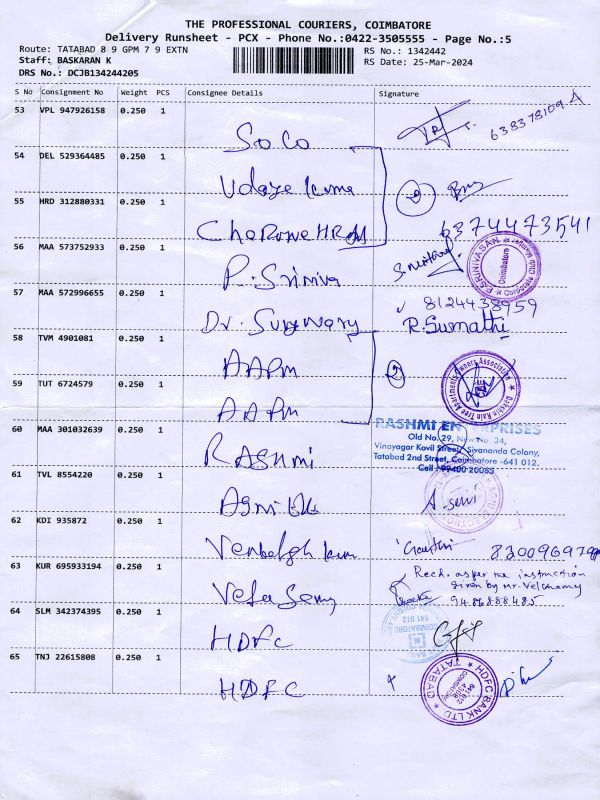 THE PROFESSIONAL COURIERS, COIMBATORE
Delivery Runsheet - PCX - Phone No.:0422-3505555 - Page No.:5
Route: TATABAD 8 9 GPM 7 9 EXTN
RS No.: 1342442
Staff: BASKARAN K
RS Date: 25-Mar-2024
DRS No.: DCJB134244205
S No Consignment No Weight PCS Consignee Details Signature
53 VPL 947926158 0.250 1 SoCo
54 DEL 529364485 0.250 1 Udaya Kuma
55 HRD 312880331 0.250 1
6374473541
56 MAA 573752933 0.250 1 P. Sriniva
P.SRINIVASAN Corporate Club Manager Coimbatore
57 MAA 572996655 0.250 1 Dr.
8124438959
R.Sumathi
58 TVM 4901081 0.250 1 AAPM 2
59 TUT 6724579 0.250 1 AAPM
Dakshin Rain Tree Apartments Owners Association
60 MAA 301032639 0.250 1 RASHMI
RASHMI ENTERPRISES
Old No. 29, New No. 34,
Vinayagar Kovil Street, Sivananda Colony,
Tatabad 2nd Street, Coimbatore -641 012.
Cell : 99400 20085
61 TVL 8554220 0.250 1
A. Selvi
62 KDI 935872 0.250 1
63 KUR 695933194 0.250 1
Recd. as per the instruction
given by Mr. Velchamy
64 SLM 342374395 0.250 1 HDFC
COIMBATORE 641 012
65 TNJ 22615808 0.250 1 HDFC
HDFC BANK LTD. TATABAD